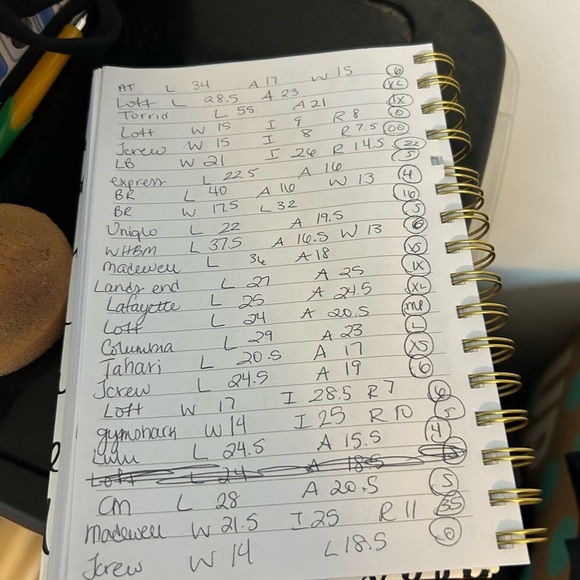 AT L 34 A 17 W 15 6
Loft L 28.5 A 23 XL
Torrid L 55 A 21 1X
Loft W 15 I 9 R 8 0
Jcrew W 15 I 8 R 7.5 00
LB W 21 I 26 R 14.5 22
express L 22.5 A 16 S
BR L 40 A 16 W 13 4
BR W 17.5 L 32 10
Uniqlo L 22 A 19.5 S
WHBM L 37.5 A 16.5 W 13 6
madewell L 36 A 18 XS
Lands end L 27 A 25 1X
Lafayette L 25 A 24.5 XL
Loft L 24 A 20.5 MP
Columbia L 29 A 23 L
Tahari L 20.5 A 17 XS
Jcrew L 24.5 A 19 6
Loft W 17 I 28.5 R 7 6
gymshark W 14 I 25 R 10 S
Lulu L 24.5 A 15.5 4
Loft L 24 A 18.5
CM L 28 A 20.5 S
Madewell W 21.5 I 25 R 11 35
Jcrew W 14 L 18.5 0